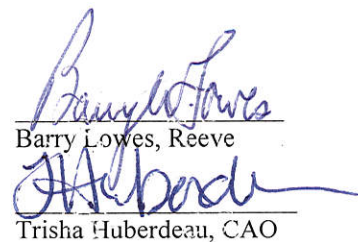 Barry Lowes
Barry Lowes, Reeve
THuberdeau
Trisha Huberdeau, CAO